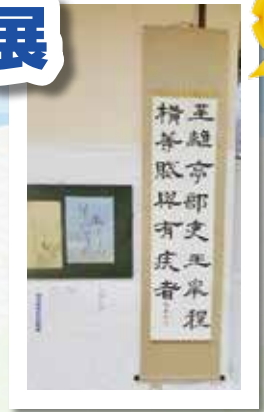 展
至離亭部吏王皋程
横等賦與有疾者